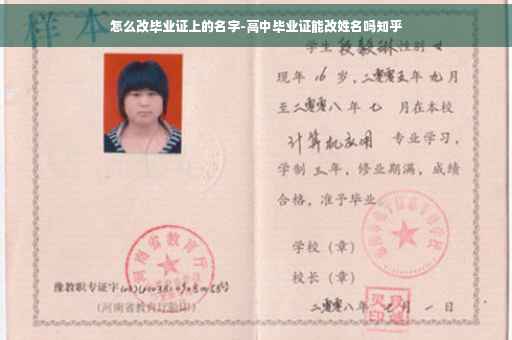 怎么改毕业证上的名字-高中毕业证能改姓名吗知乎
样本
学生 段毅琳 性别 女
现年 16 岁，二零零五年 九 月
至二零零八年 七 月在本校
计算机应用 专业学习，
学制 三 年，修业期满，成绩
合格，准予毕业。
学校（章）
校长（章）
二零零八年 七 月 一 日
河南省教育厅
豫教职专证字
（河南省教育厅验印）